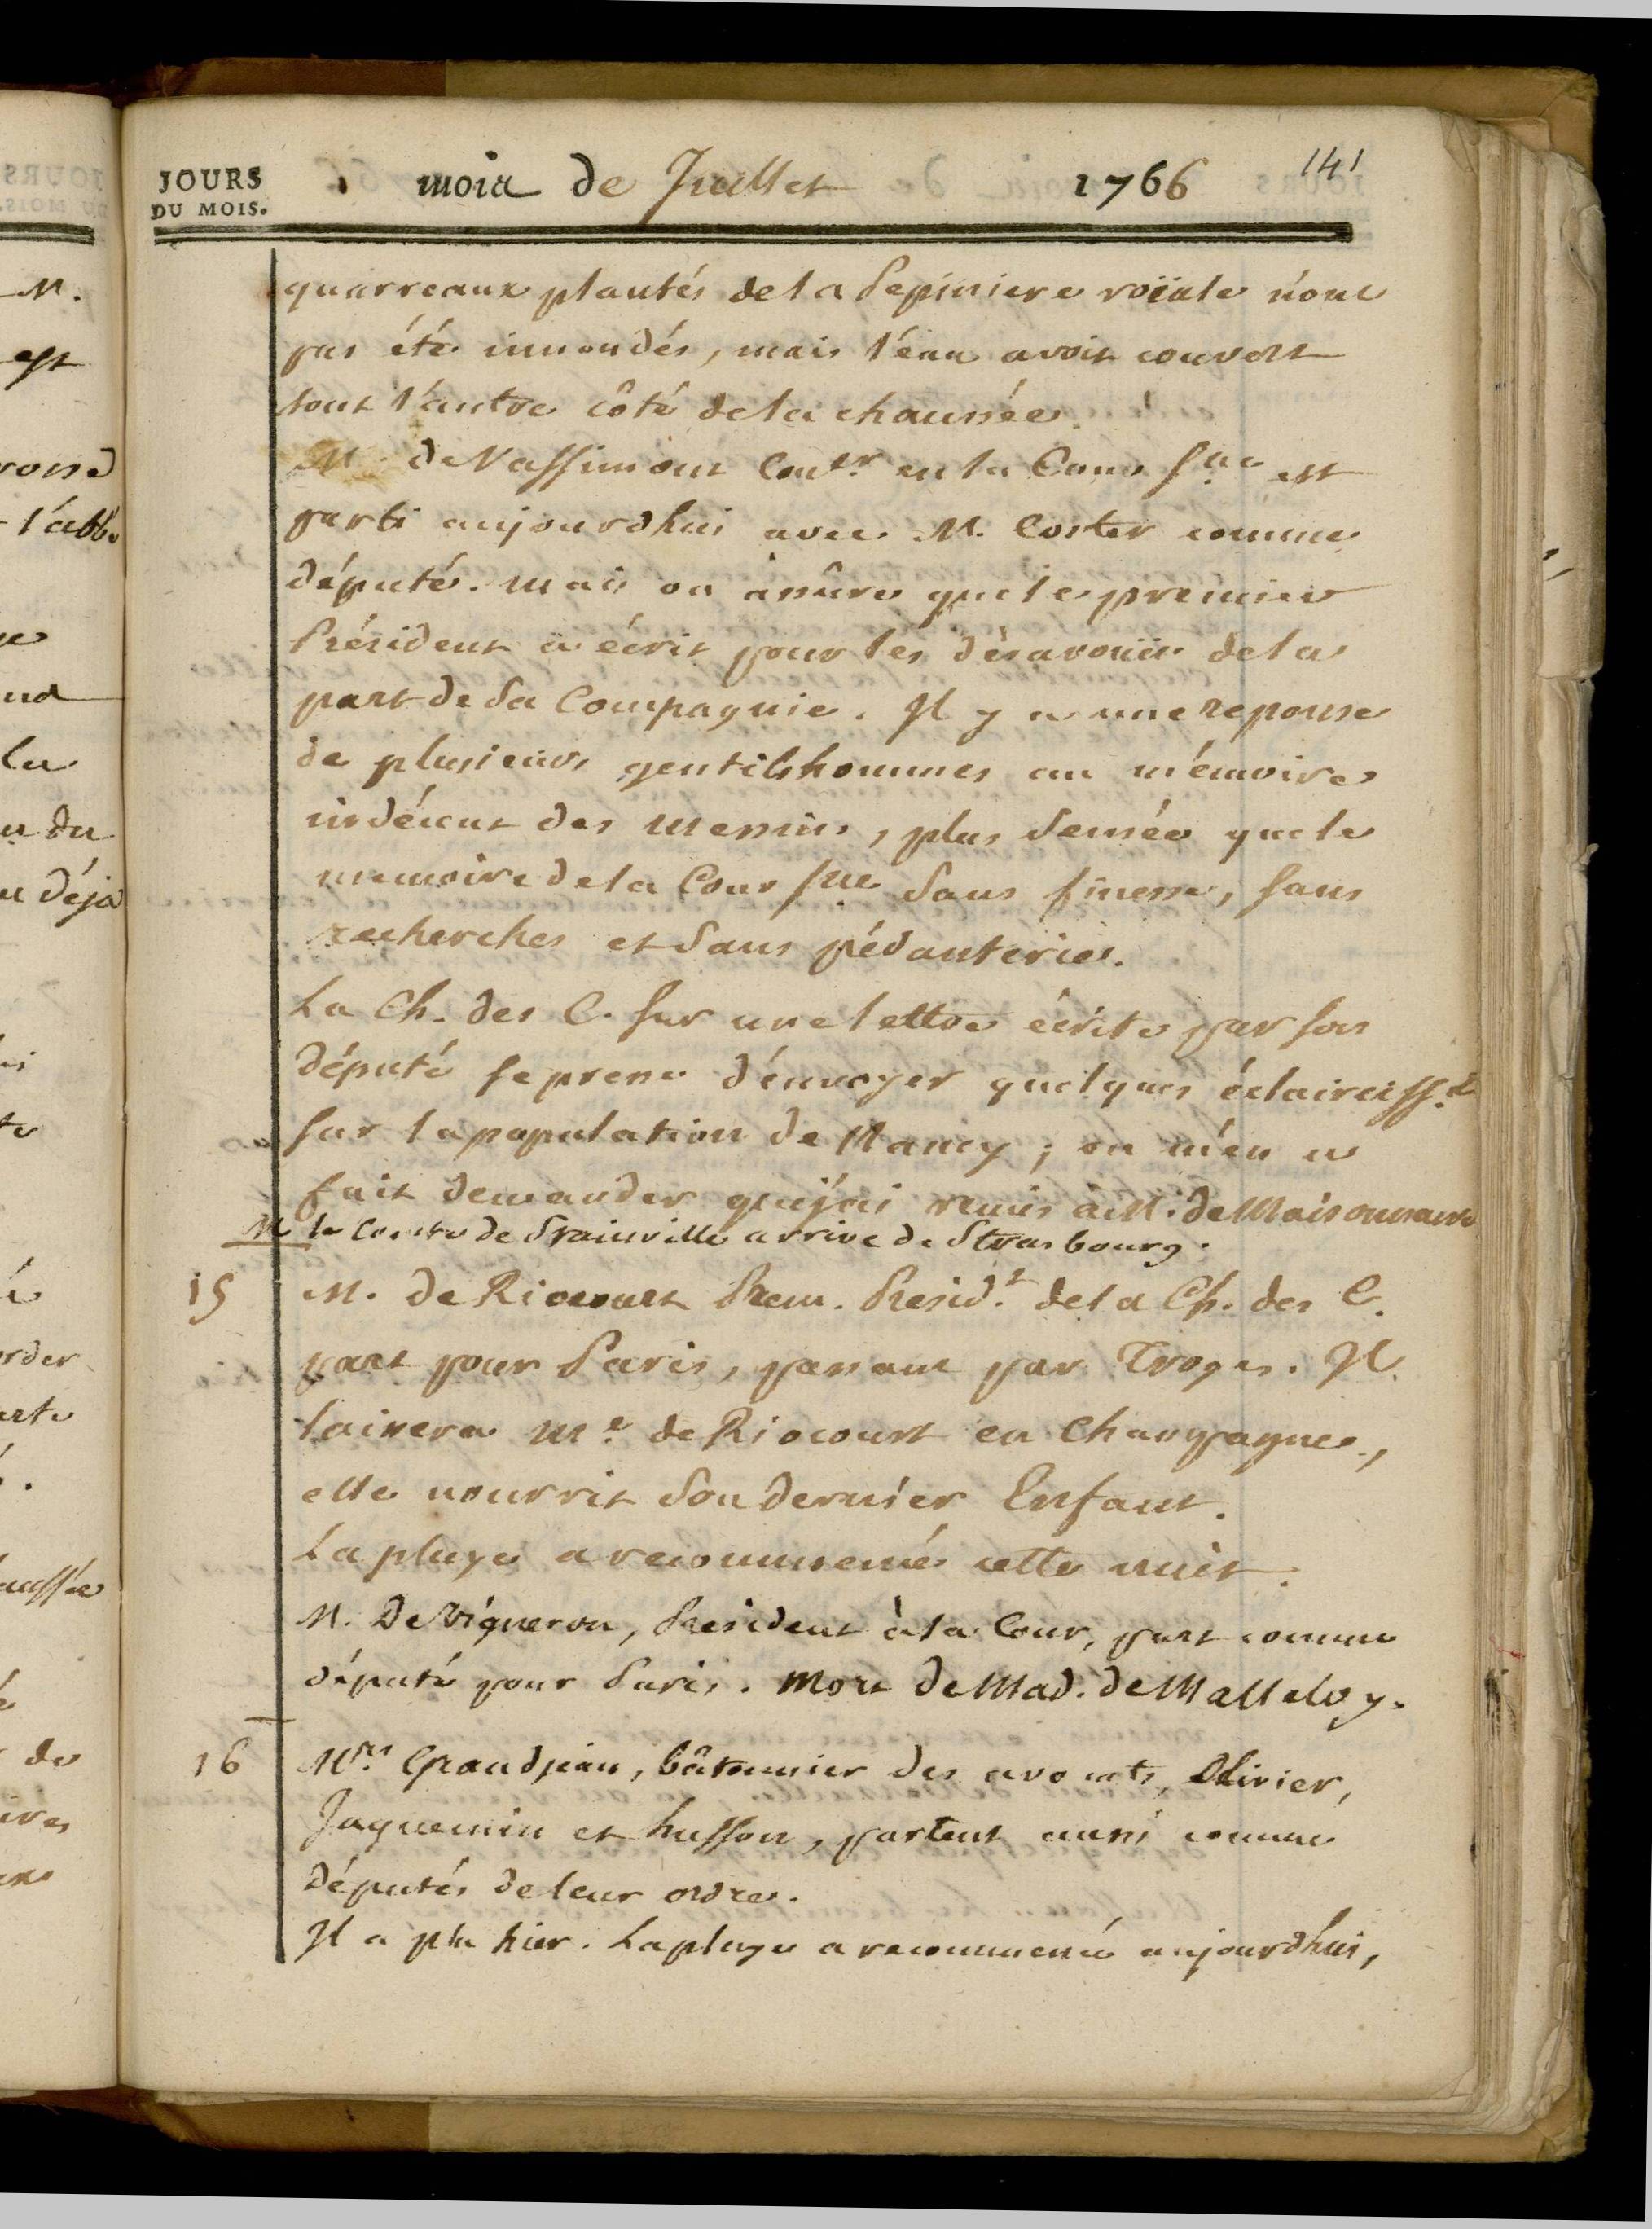 JOURS
DU MOIS.
mois de Juillet 1766 141
quarreaux plantés de la Pepiniere roïale n'ont
pas été innondés, mais l'eau avoit couvert
tout l'autre côté de la chaussée.
M. de Vassimont Con.er en la Cour S.ne est
parti aujourdhui avec M. Coster comme
député. mais on assûre que le premier
Président a écrit pour les désavoüer de la
part de sa Compagnie. Il y a une reponse
de plusieurs gentilshommes au mémoire
indécent des Messins, plus sensée que le
memoire de la Cour S.ne sans finesse, sans
recherches et sans pédanteries.
La Ch. des C. sur une lettre écrite par son
député se presse d'envoyer quelques éclairciss.s
sur la population de Nancy ; on m'en a
fait demander que j'ai remis à M. de Maisonneuve
M. le Comte de Stainville arrive de Strasbourg.
15 M. de Riocourt Prem. Presid.t de la Ch. des C.
part pour Paris, passant par Troyes. Il
laissera M.e de Riocourt en Champagne,
elle nourrit son dernier Enfant.
La pluye a recommencé cette nuit.
M. De Vigneron, President à la Cour, part comme
député pour Paris. Mort de Mad. de Malleloy.
16 M.rs Grandjean, bâtonnier des avocats, Olivier,
Jaquemin et husson, partent aussi comme
députés de leur ordre.
Il a plu hier. La pluye a recommencé aujourdhui,
M.
est
l'abbé
la
du
déja
de